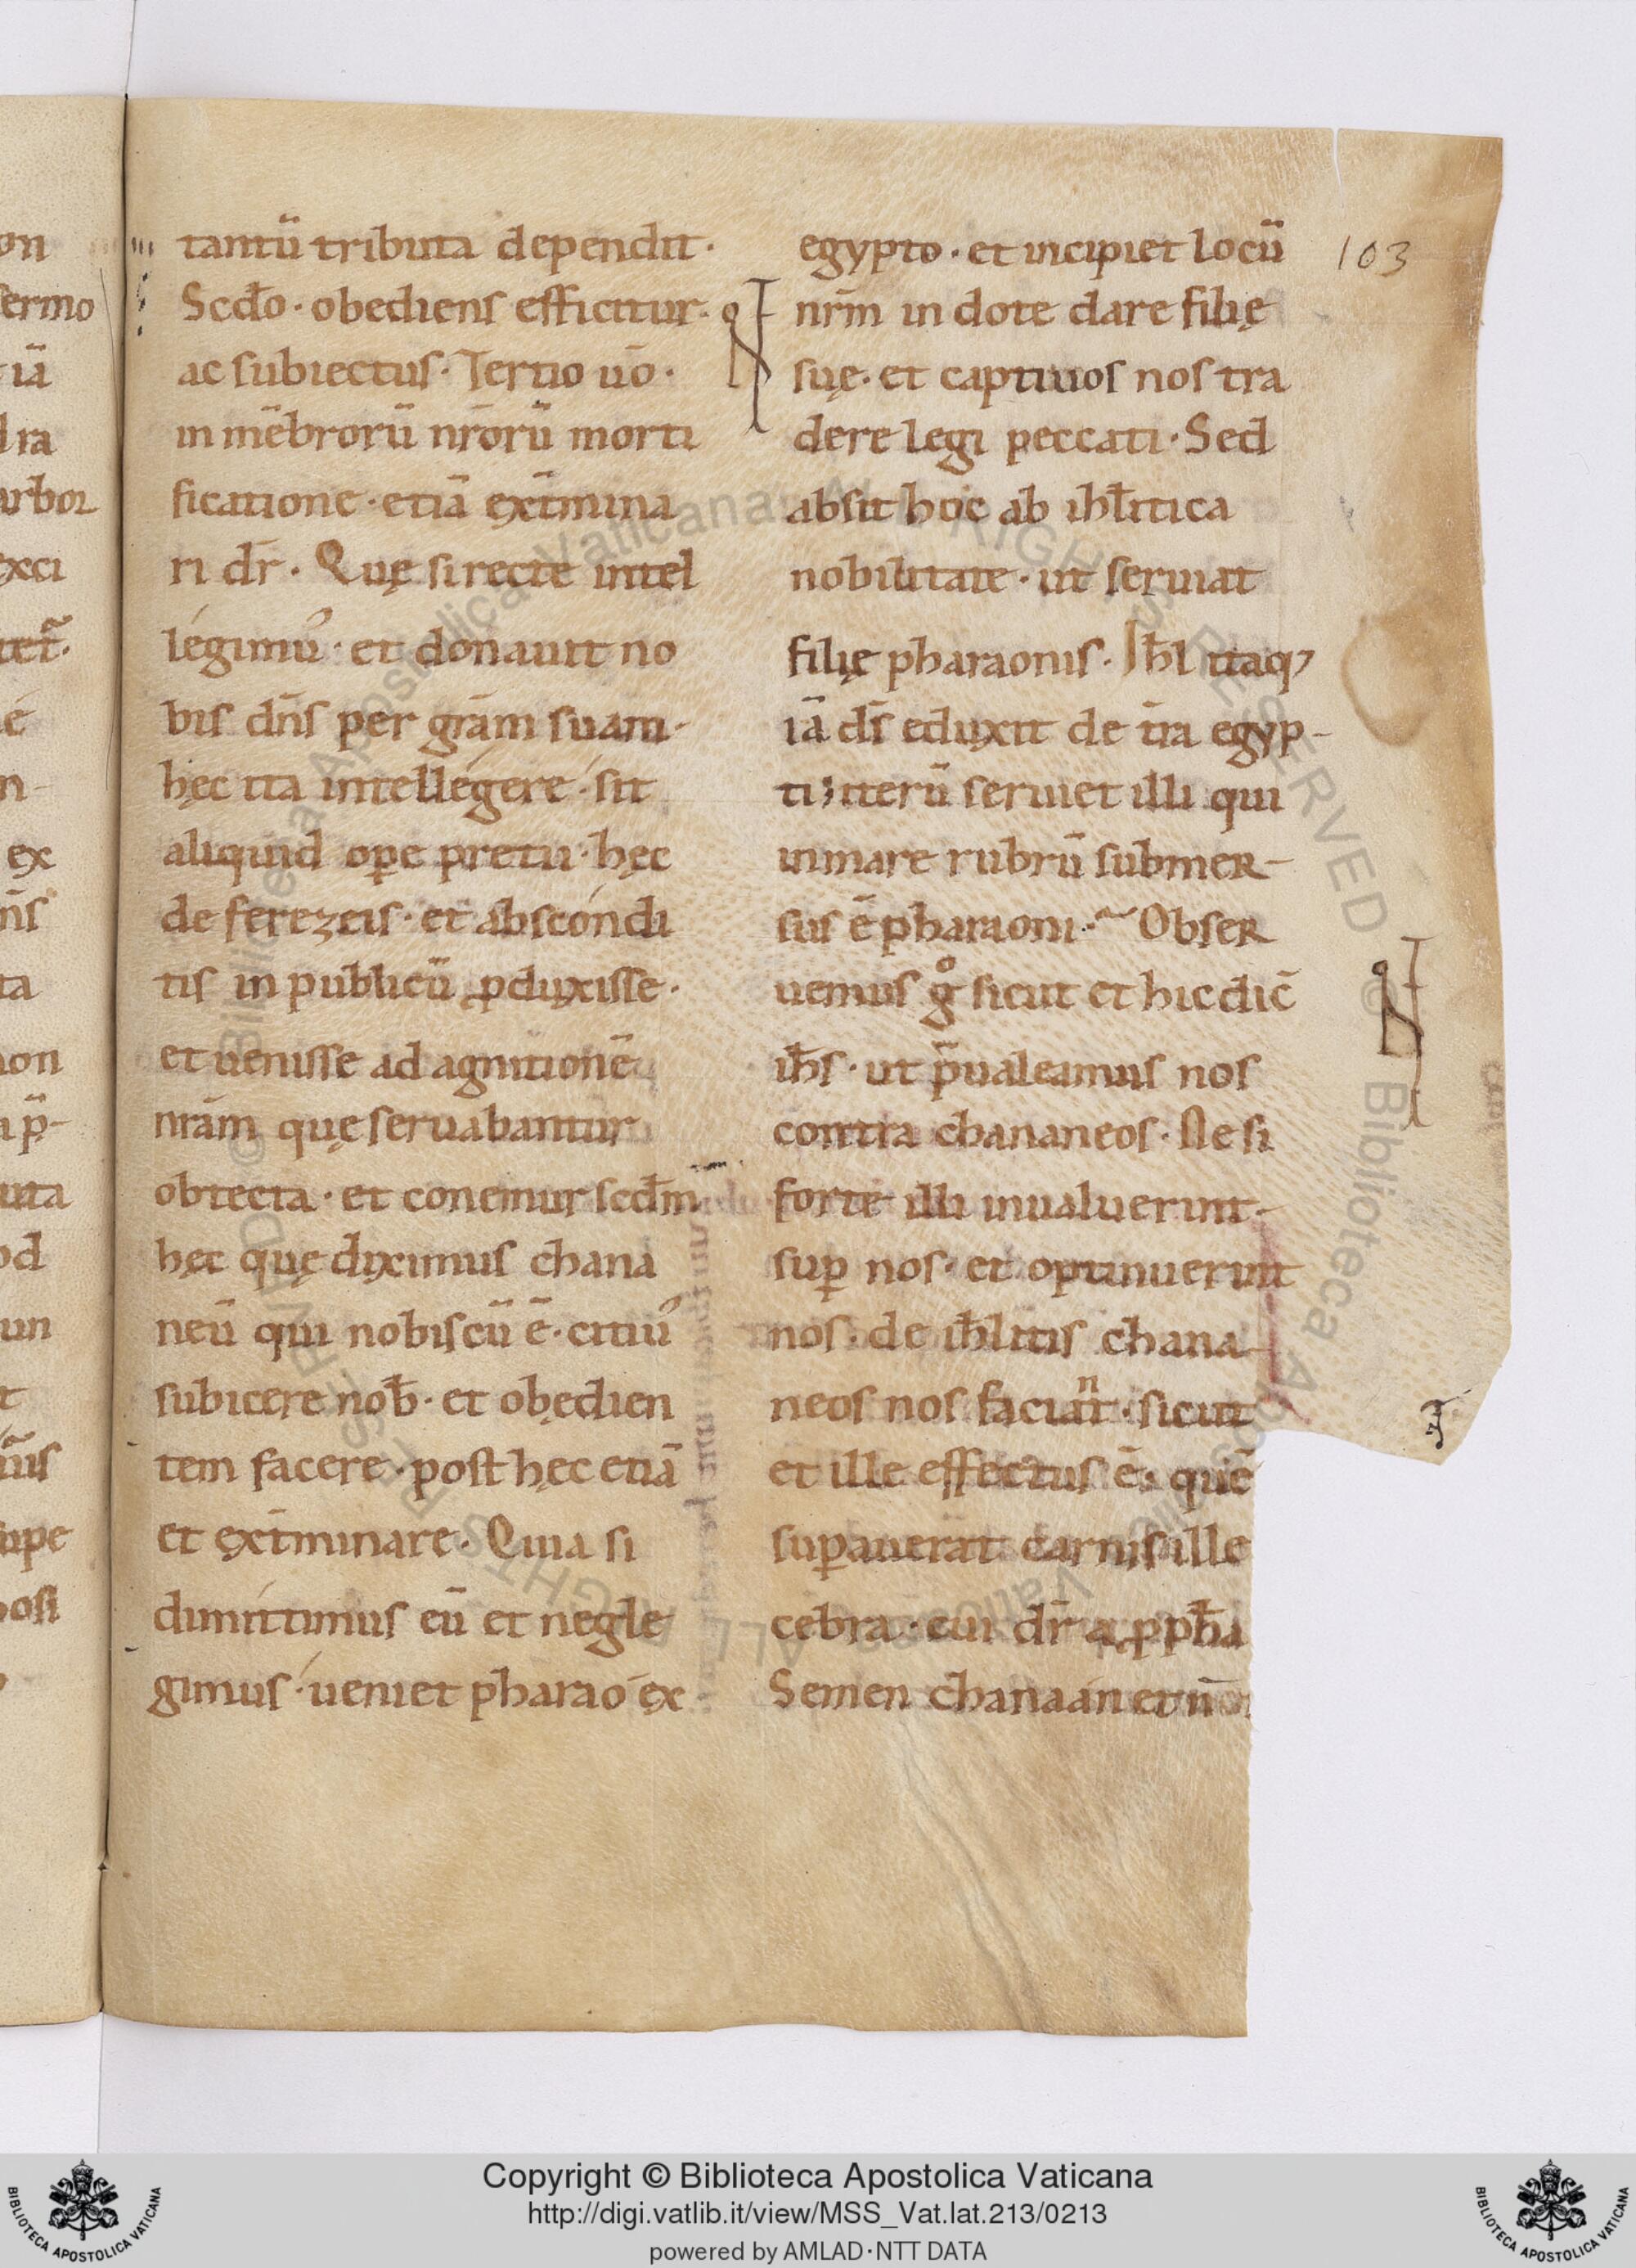 tantū tributa dependit·
Scdo· obediens efficitur·
ac subiectus· Tertio uō·
in mēbrorū nr̄orū morti
ficatione· etiā ext̄mina
ri dr̄· Quę si recte intel
legimuʼ· et donauit no
bis dn̄s per grām suam·
hęc ita intellégere· sit
aliquid ope pretii· hęc
de ferezeis· et absconditis
tis in publicū ꝓduxisse·
et uenisse ad agnitionē
nrām quę seruabantur
obtecta· et conemur scdm̄
hęc quę diximus chana
neū qui nobiscū ē· citiuʼ
subicere nob̄· et obędien
tem facere· post hęc etiā
et ext̄minare· Quia si
dimittimus eū et negle
gimus· ueniet pharao ex
egypto· et incipiet locū
nrm̄ in dote dare filię
suę· et captiuos nos tra
dere legi peccati· Sed
absit hoc ab ihl̄itica
nobilitate· ut seruiat
filię pharaonis· Ih̄l itaqꝫ
iā ds̄ eduxit de tr̄a egyp-
ti; iterū seruiet illi qui
in mare rubrū submer-
sus ē pharaoni· Obser
uemus gͦ sicut et hic dic̄
ih̄s· ut p̄ualeamus nos
contra chananeos· Ne si
forte illi inualuerint·
suꝑ nos· et optinuerint
nos· de ih̄litis chana-
neos nos faciant· sicut
et ille effectus ē· quē
suꝑauerat carnis ille
cebra· cui dr̄ a ꝓph̄a
Semen chanaan et nō
103
Copyright © Biblioteca Apostolica Vaticana
http://digi.vatlib.it/view/MSS_Vat.lat.213/0213
powered by AMLAD·NTT DATA
BIBLIOTECA APOSTOLICA VATICANA
BIBLIOTECA APOSTOLICA VATICANA